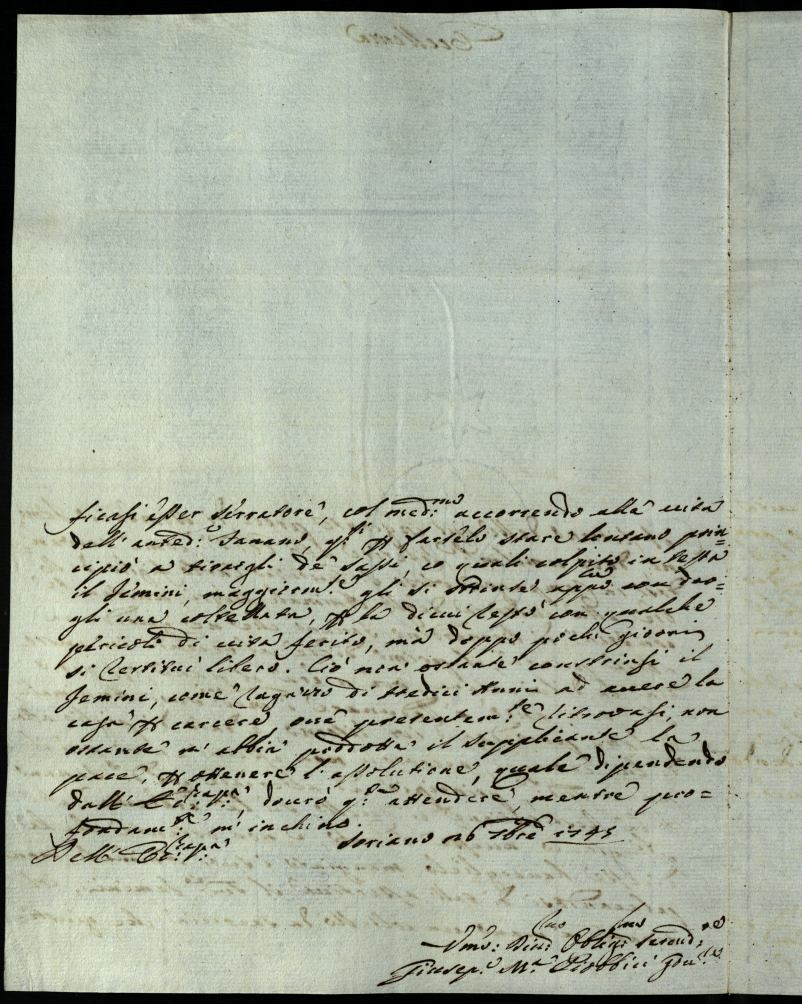 ficasi esser serratore, col med:mo accorrendo alla vita
dell'anted:o Sanano, q.sti p farselo stare lontano prin=
cipiò a tirargli de sassi, co quali colpito in testa
il Jemini, maggiorm.te gli si strinse app.o con dar=
gli una coltellata, p la di cui restò con qualche
pericolo di vita ferito, mà doppo pochi giorni
si restituì libero. Ciò non ostante constrinsi il
Jemini, come ragazzo di tredici Anni ad avere la
casa p carcere ove presentem.te ritrovasi, non
ostante n'abbia prodotta il supplicante la
pace, p ottenere l'assolutione, quale dipendendo
dall' dovrò q.ta attendere, mentre pro=
fondam.te m'inchino.
Dell' Soriano 26 1745
Umo: Obligmo:
Giusep.e M.a